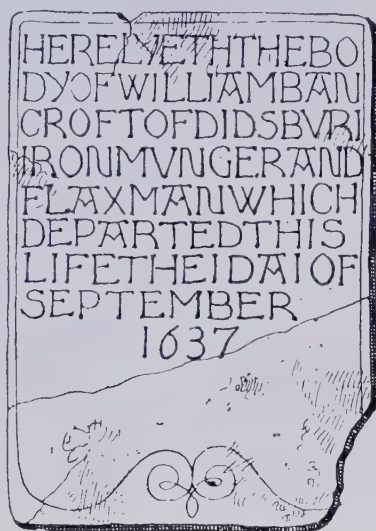 HERELYETHTHEBO
DYOFWILLIAMBAN
CROFTOFDIDSBVRI
IRONMVNGERAND
FLAXMANWHICH
DEPARTEDTHIS
LIFETHEIDAIOF
SEPTEMBER
1637